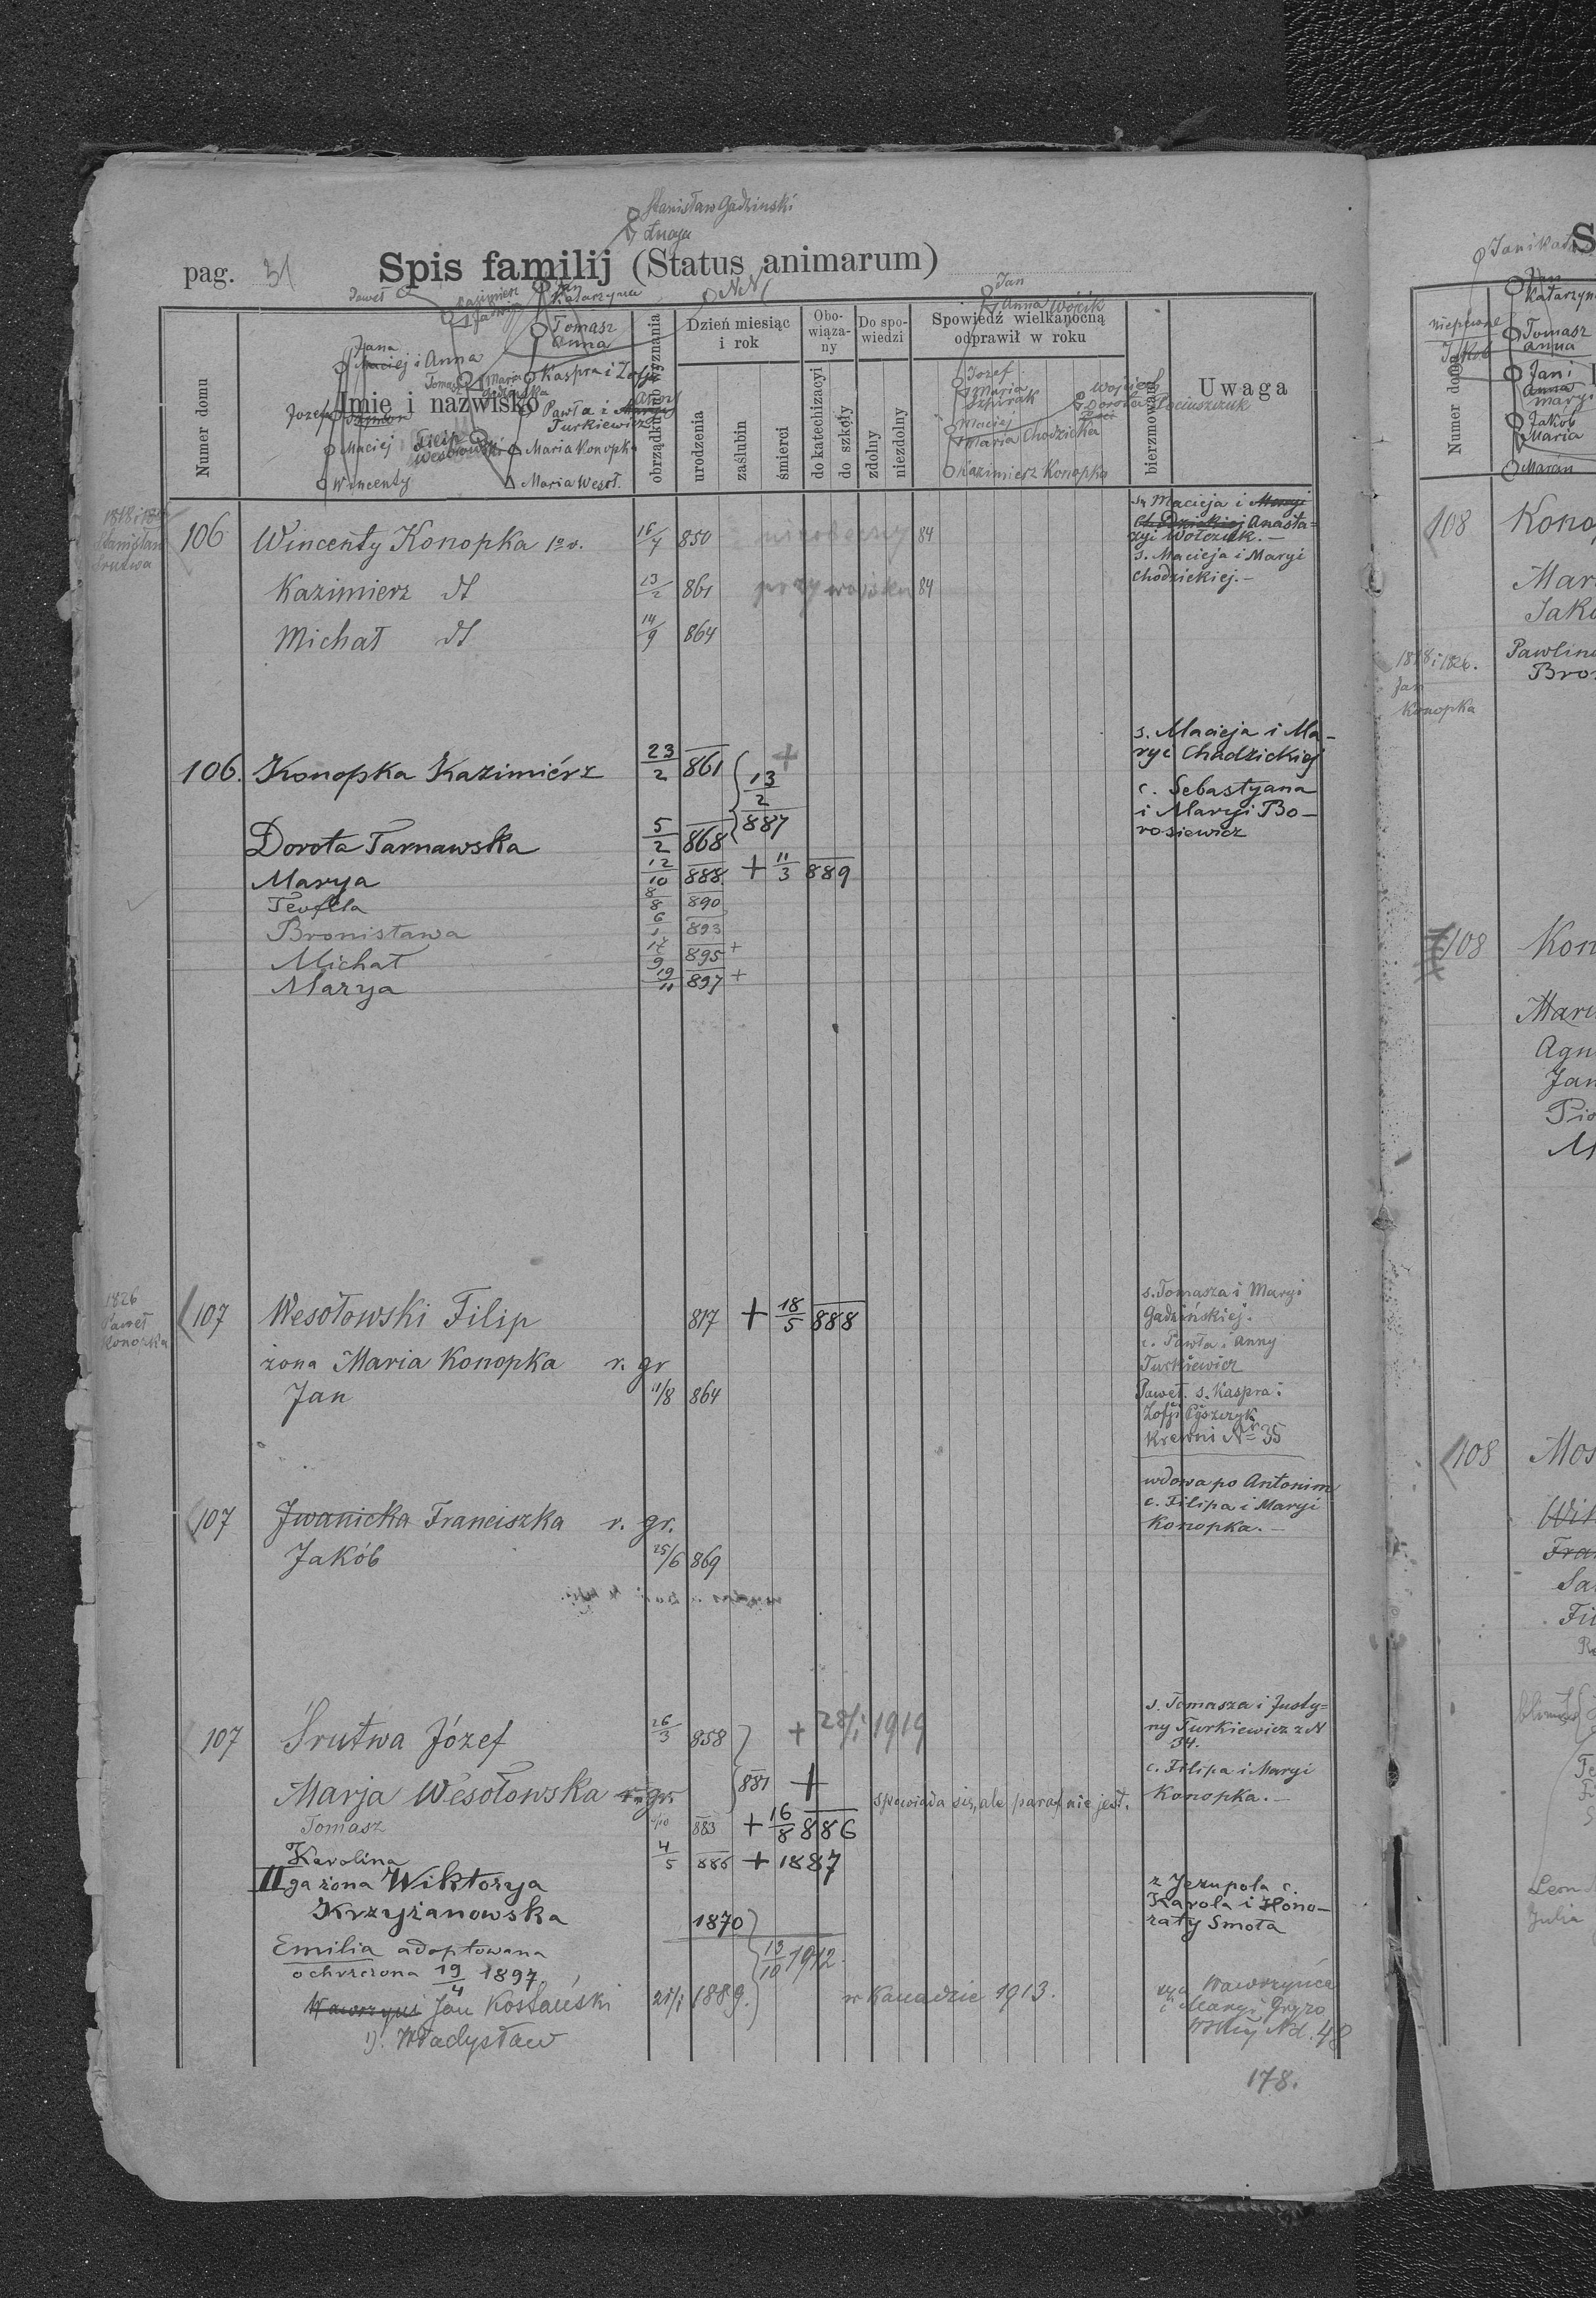 Stanisław Gadzinski
pag. 31 Spis familij (Status animarum)
Paweł
Kazimierz
Jan
Katarzyna
NN
Jan
Anna Wójcik
Numer domu
Imię i nazwisko
obrządku lub wyznania
Dzień miesiąc i rok
urodzenia
zaślubin
śmierci
Obo-
wiąza-
ny
do katechizacyi
do szkoły
Do spo-
wiedzi
zdolny
niezdolny
Spowiedź wielkanocną
odprawił w roku
bierzmowany
Uwaga
Tomasz
Anna
Jana
Maciej i Anna
Tomasz
Maria
Kaspra i Zofja
Józef
Szymon
Pawła i Maryi Anny
Turkiewicz
Maciej
Filip
Wesołowski
Maria Konopka
Wincenty
Maria Wesoł.
Józef
Maria
Maciej
Maria Chodzicka
Kazimierz Konopka
Wojciech
Dorota
1818 i
Stanisław
Srutwa
106 Wincenty Konopka 16/7 850 nieobecny 84
s. Macieja i Maryi
Chodzickiej Anasta=
zyi Wołczuk.-
Kazimierz dt 23/2 861 przy wojsku 84
s. Macieja i Maryi
Chodzickiej.-
Michał dt 14/9 864
106. Konopka Kazimiérz 23/2 861 + 13/2 887
s. Macieja i Ma-
ryi Chodzickiej
Dorota Tarnawska 5/2 868
c. Sebastyana
i Maryi Bo-
rosiewicz
Marya 12/10 888. + 11/3 889
Teofila 8/8 890
Bronisława 6/1 893
Michał 17/9 895 +
Marya 19/11 897 +
1826
Paweł
Konopka
107 Wesołowski Filip 817 + 18/5 888
s. Tomasza i Maryi
Gadzińskiej.
żona Maria Konopka r. gr
c. Pawła i Anny
Turkiewicz
Jan 11/8 864
Paweł s. Kaspra i
Zofji Pyszczyk
Krewni Nr 35
107 Iwanicka Franciszka r. gr.
wdowa po Antonim
c. Filipa i Maryi
Konopka.-
Jakób 25/6 869
107 Srutwa Józef 26/3 858 + 28/1 1919
s. Tomasza i Justy=
ny Turkiewicz z N
34.
Marja Wesołowska r. gr. 881 +
c. Filipa i Maryi
Konopka.-
spowiada się, ale paraf nie jest.
Tomasz 883 + 16/8 886
Karolina 4/5 886 + 1887
IIga żona Wiktorya
Krzyżanowska 1870
z Jezupola c.
Karola i Hono-
raty Smoła
Emilia adoptowana
ochrzczona 19/4 1897
13/10 1912.
Wawrzyni Jan Kosłański 21/1 1889. w Kanadzie 1913.
Wawrzyńca
i Maryi
Nd. 48
1). Władysław
178.
108 Kono
108 Kon
108 Mos
1818 i 1826.
Jan
Konopka